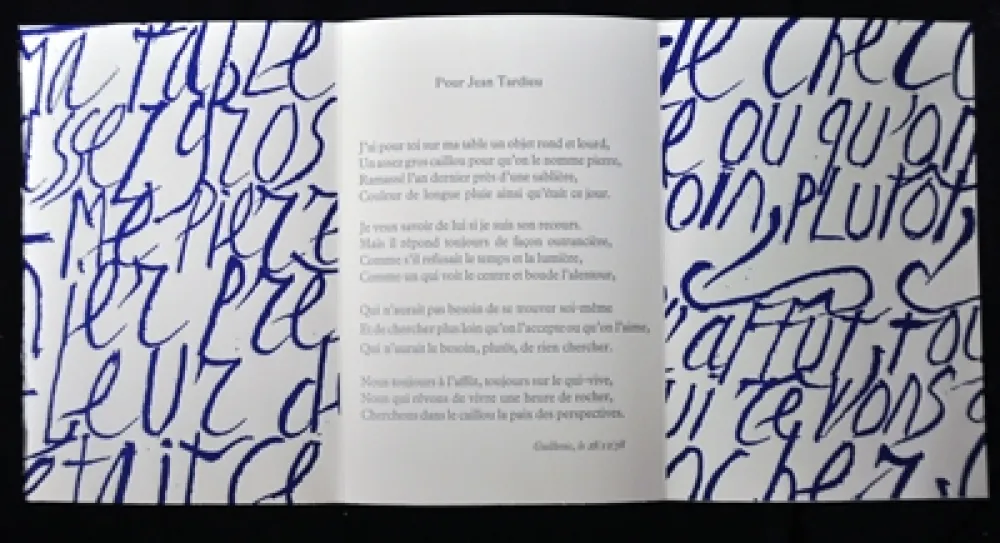 ma table
assez gros
-me pierre
nier pre
-Leur d
était ce
Pour Jean Tardieu
J'ai pour toi sur ma table un objet rond et lourd,
Un assez gros caillou pour qu'on le nomme pierre,
Ramassé l'an dernier près d'une sablière,
Couleur de longue pluie ainsi qu'était ce jour.
Je veux savoir de lui si je suis son recours.
Mais il répond toujours de façon outrancière,
Comme s'il refusait le temps et la lumière,
Comme un qui voit le centre et boude l'alentour,
Qui n'aurait pas besoin de se trouver soi-même
Et de chercher plus loin qu'on l'accepte ou qu'on l'aime,
Qui n'aurait le besoin, plutôt, de rien chercher.
Nous toujours à l'affût, toujours sur le qui-vive,
Nous qui rêvons de vivre une heure de rocher,
Cherchons dans le caillou la paix des perspectives.
de cherc
e ou qu'on
oin, plutôt,
l'affût, tou
ui rêvons
ocher,